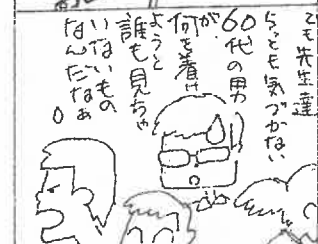 でも先生達
ちっとも気づかない
60代の男
が
何を着け
ようと
誰も見ちゃ
いないもの
なんだなぁ